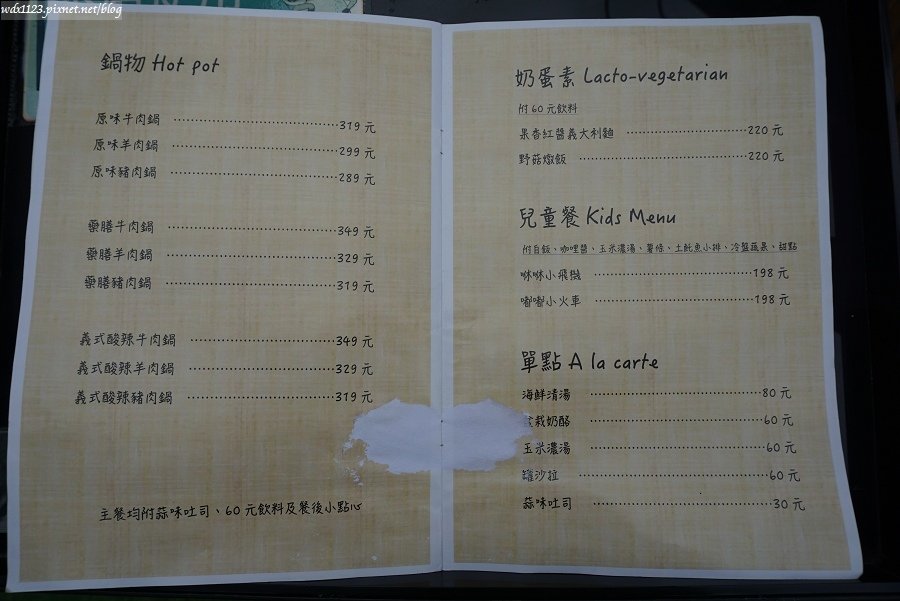 wdx1123.pixnet.net/blog
鍋物 Hot pot
原味牛肉鍋 ⋯⋯⋯⋯⋯⋯⋯⋯⋯⋯ 319 元
原味羊肉鍋 ⋯⋯⋯⋯⋯⋯⋯⋯⋯⋯ 299 元
原味豬肉鍋 ⋯⋯⋯⋯⋯⋯⋯⋯⋯⋯ 289 元
藥膳牛肉鍋 ⋯⋯⋯⋯⋯⋯⋯⋯⋯⋯ 349 元
藥膳羊肉鍋 ⋯⋯⋯⋯⋯⋯⋯⋯⋯⋯ 329 元
藥膳豬肉鍋 ⋯⋯⋯⋯⋯⋯⋯⋯⋯⋯ 319 元
義式酸辣牛肉鍋 ⋯⋯⋯⋯⋯⋯⋯⋯ 349 元
義式酸辣羊肉鍋 ⋯⋯⋯⋯⋯⋯⋯⋯ 329 元
義式酸辣豬肉鍋 ⋯⋯⋯⋯⋯⋯⋯⋯ 319 元
主餐均附蒜味吐司、60 元飲料及餐後小點心
奶蛋素 Lacto-vegetarian
附 60 元飲料
果香紅醬義大利麵 ⋯⋯⋯⋯⋯⋯⋯ 220 元
野菇燉飯 ⋯⋯⋯⋯⋯⋯⋯⋯⋯⋯ 220 元
兒童餐 Kids Menu
附白飯、咖哩醬、玉米濃湯、薯條、土魠魚小排、冷盤蔬果、甜點
咻咻小飛機 ⋯⋯⋯⋯⋯⋯⋯⋯⋯ 198 元
嘟嘟小火車 ⋯⋯⋯⋯⋯⋯⋯⋯⋯ 198 元
單點 A la carte
海鮮清湯 ⋯⋯⋯⋯⋯⋯⋯⋯⋯⋯ 80 元
栽奶酪 ⋯⋯⋯⋯⋯⋯⋯⋯⋯⋯ 60 元
玉米濃湯 ⋯⋯⋯⋯⋯⋯⋯⋯⋯⋯ 60 元
罐沙拉 ⋯⋯⋯⋯⋯⋯⋯⋯⋯⋯ 60 元
蒜味吐司 ⋯⋯⋯⋯⋯⋯⋯⋯⋯⋯ 30 元